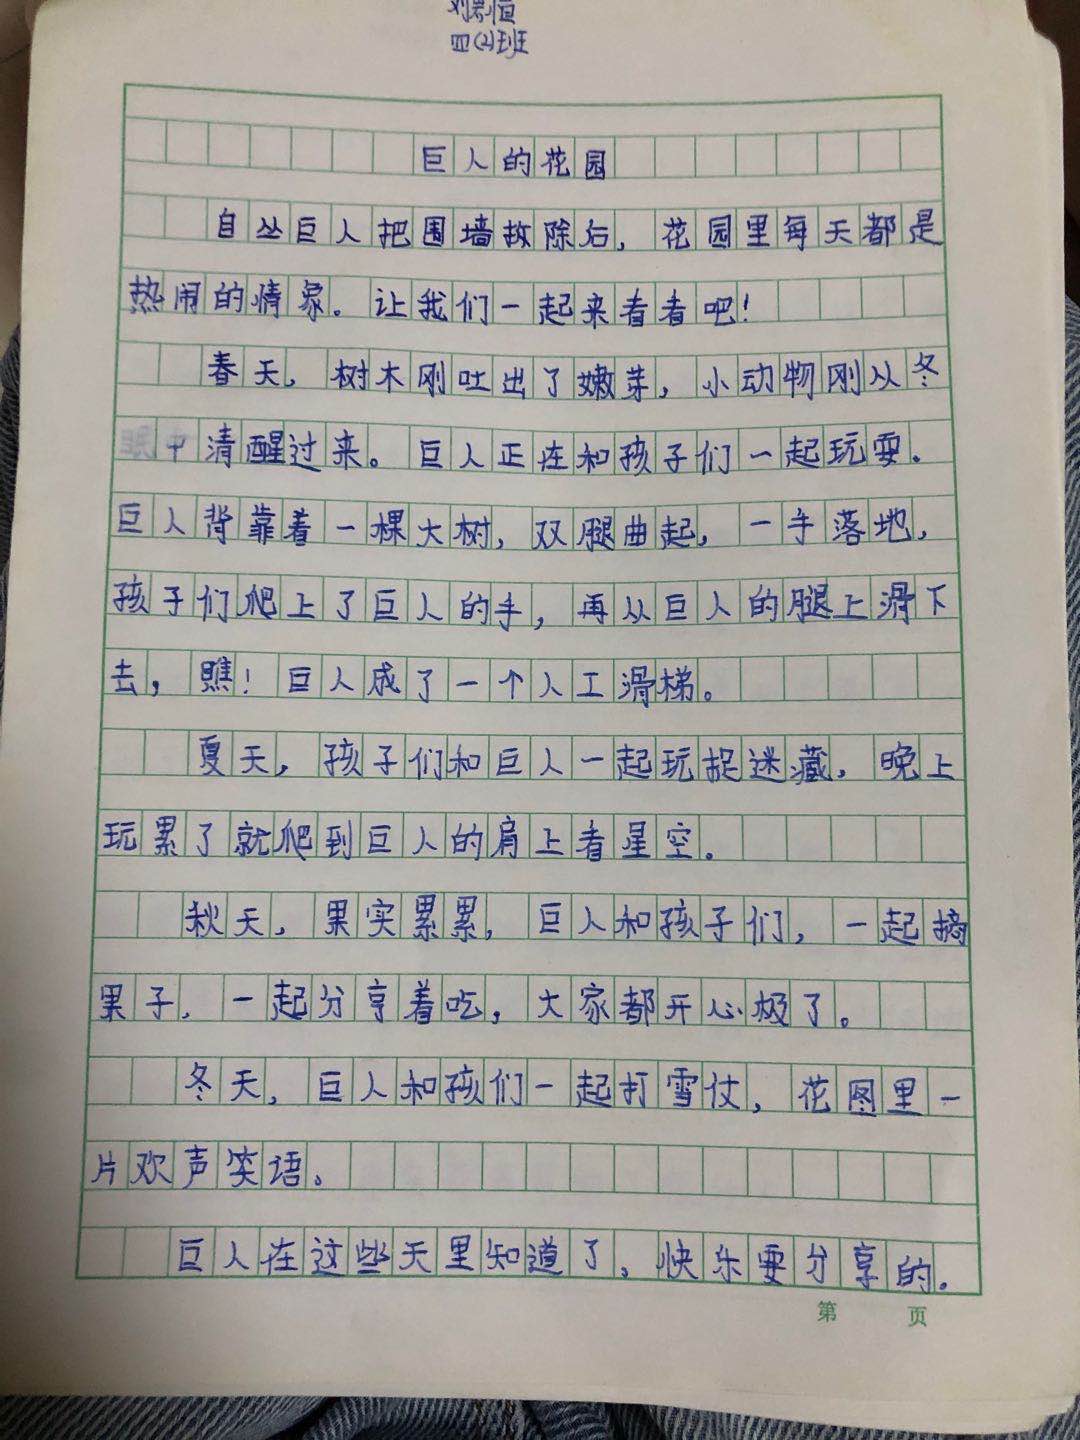 四(2)班
巨人的花园
自从巨人把围墙拆除后，花园里每天都是
热闹的情景。让我们一起来看看吧！
春天，树木刚吐出了嫩芽，小动物刚从冬
眠中清醒过来。巨人正在和孩子们一起玩耍。
巨人背靠着一棵大树，双腿曲起，一手落地，
孩子们爬上了巨人的手，再从巨人的腿上滑下
去，瞧！巨人成了一个人工滑梯。
夏天，孩子们和巨人一起玩捉迷藏，晚上
玩累了就爬到巨人的肩上看星空。
秋天，果实累累，巨人和孩子们，一起摘
果子，一起分享着吃，大家都开心极了。
冬天，巨人和孩们一起打雪仗，花园里一
片欢声笑语。
巨人在这些天里知道了，快乐要分享的。
第 页